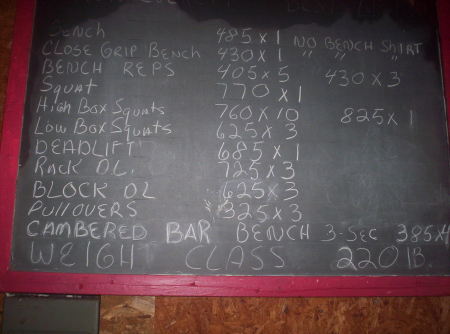 BENCH 485 x 1 NO BENCH SHIRT
CLOSE GRIP BENCH 430 x 1 " " "
BENCH REPS 405 x 5 430 x 3
SQUAT 770 x 1
HIGH BOX SQUATS 760 x 10 825 x 1
LOW BOX SQUATS 625 x 3
DEADLIFT 685 x 1
RACK D.L. 725 x 3
BLOCK DL 625 x 3
PULLOVERS 325 x 3
CAMBERED BAR BENCH 3-SEC 385x4
WEIGH CLASS 220 lB.